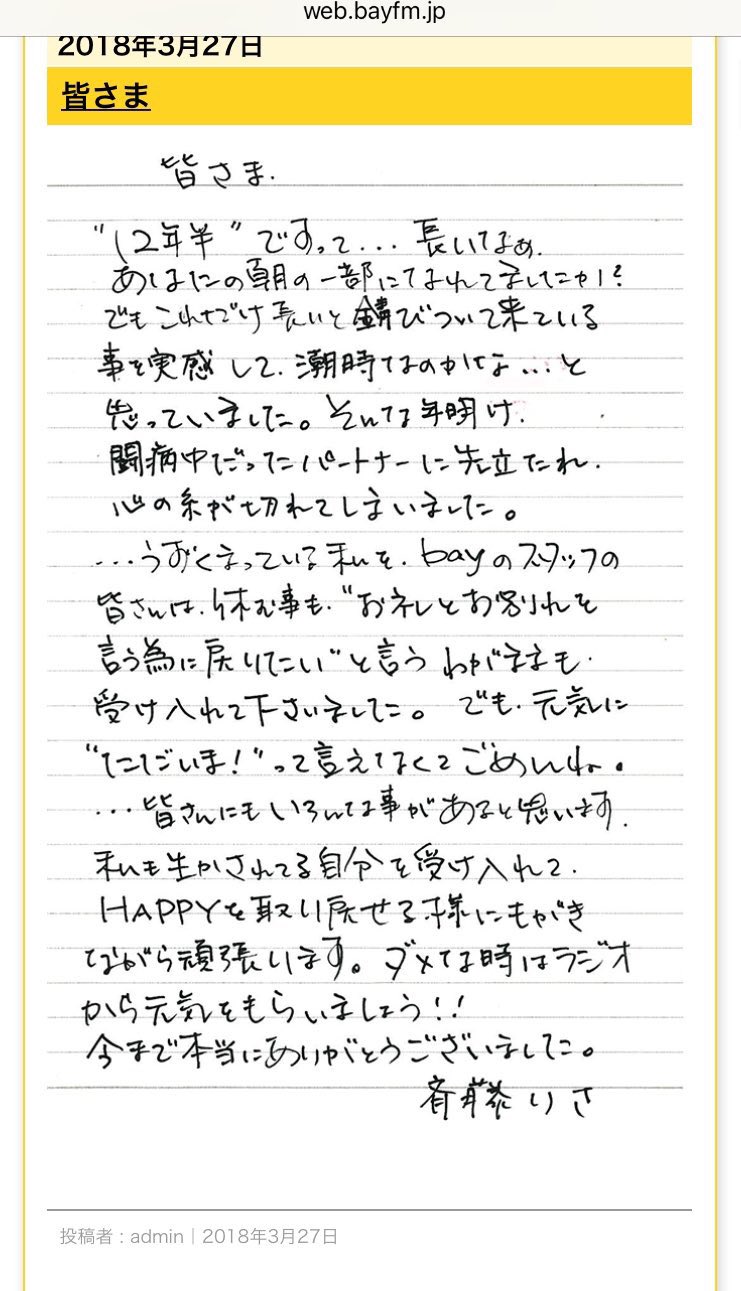 web.bayfm.jp
2018年3月27日
皆さま
皆さま.
“12年半”ですって… 長いなぁ.
あなたの朝の一部になれてましたか!?
でもこれだけ長いと錆びついて来ている
事を実感して、潮時なのかな…と
思っていました。そんな年明け、
闘病中だったパートナーに先立たれ、
心の糸が切れてしまいました。
…うずくまっている私を、bayのスタッフの
皆さんは、休む事も、“お礼とお別れを
言う為に戻りたい”と言うわがままも、
受け入れて下さいました。でも、元気に
“ただいま!”って言えなくてごめんね。
…皆さんにもいろんな事があると思います.
私も生かされてる自分を受け入れて、
HAPPYを取り戻せる様にもがき
ながら頑張います。ダメな時はラジオ
から元気をもらいましょう!!
今まで本当にありがとうございました。
斉藤りさ
投稿者 : admin｜2018年3月27日